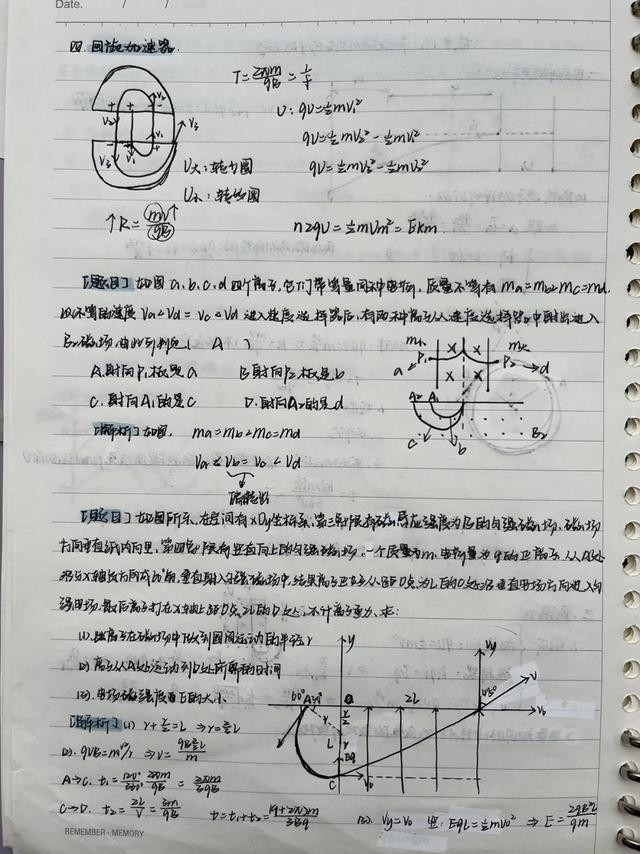 Date. / /
四. 回旋加速器.
T=2πm/qB=1/f
U: qU=½mV₁²
qU=½mV₂²-½mV₁²
qU=½mV₃²-½mV₂²
U大:转少圈
U小:转多圈
↑R=mv↑/qB
n2qU=½mVm²=Ekm
【题目】如图 a.b.c.d 四个离子,它们带等量同种电荷,质量不等有 ma=mb<mc=md
以不等的速度 Va<Vb=Vc<Vd 进入速度选择器后,有两种离子从速度选择器中射出进入
B₂磁场,由此可判定( A )
A.射向P₁板是a B.射向P₂板是b
C.射向A₁的是C D.射向A₂的是d
【解析】如图. ma=mb<mc=md
Va<Vb=Vc<Vd
P₁ P₂ a d
A₂ A₁ B₂ c b
【题目】如图所示.在空间有xOy坐标系.第三象限有磁感应强度为B的匀强磁场,磁场
方向垂直纸内向里,第四象限有竖直向上的匀强,一个质量为m,电荷量为q的正离子,从A处
沿与x轴成60°角,垂直射入匀强磁场中,结果离子正好从距O点为L的C处沿垂直电场方向进入匀
强电场,最后离子打在x轴上距O点2L的D处,不计离子重力.求:
(1).此离子在磁场中做匀圆周运动的半径r
(2)离子从A处运动到D处所需的时间
(3).电场强度E的大小.
【解析】(1) r+r/2=L ⇒r=⅔L
(2). qVB=mv²/r ⇒V=
A→C. t₁=120°/360°·2πm/qB=2πm/3qB
C→D. t₂=2L/V=3m/qB t=t₁+t₂=
(3). Vy=V₀ EqL=½mV₀² ⇒E=
y Vy V V₀ 45° 2L 60° A O L r Eq C V₀
REMEMBER·MEMORY